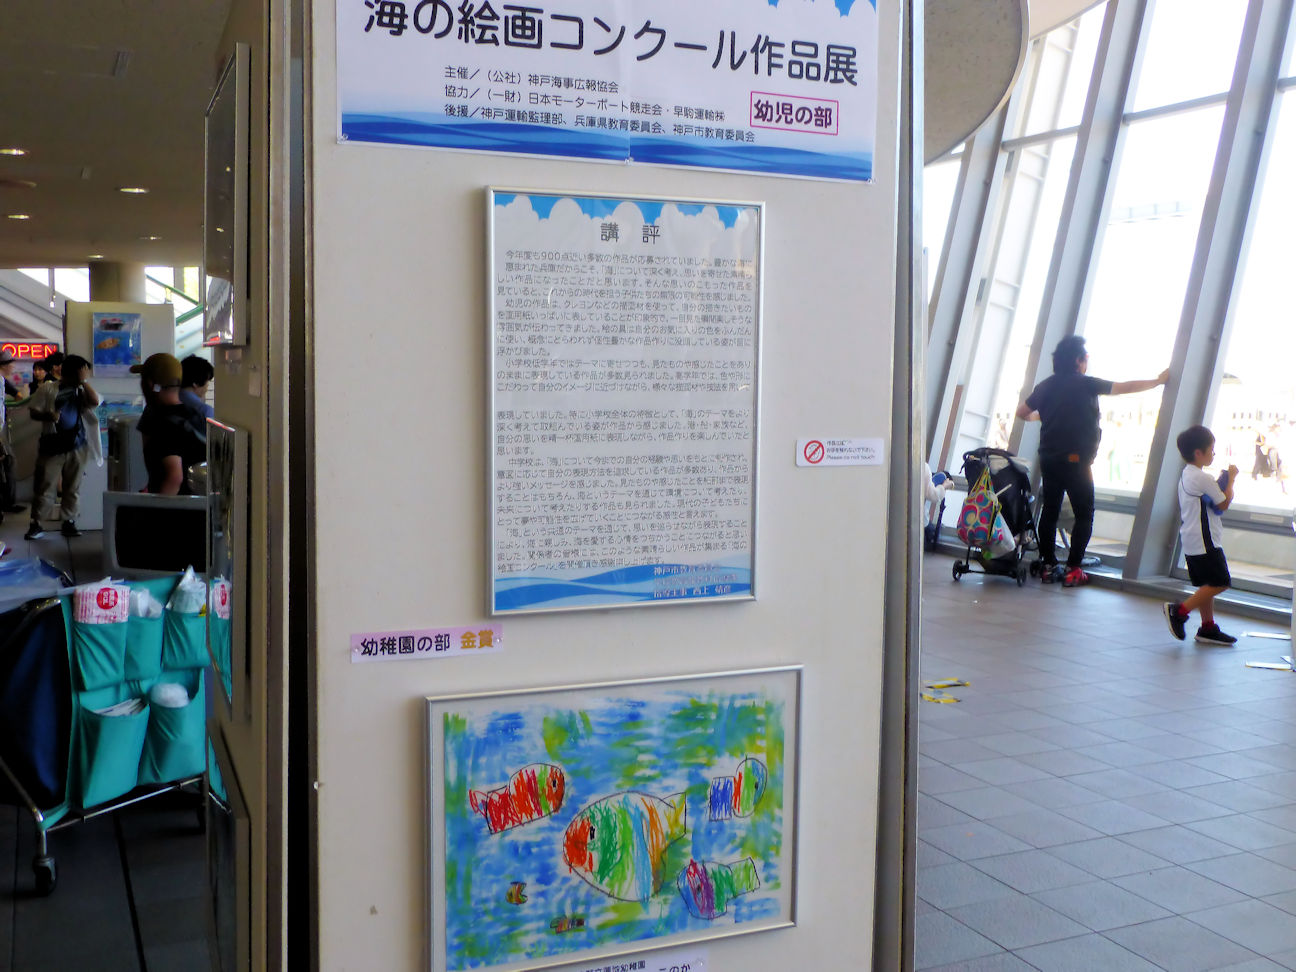 海の絵画コンクール作品展
主催／（公社）神戸海事広報協会
協力／（一財）日本モーターボート競走会・早駒運輸㈱
後援／神戸運輸監理部、兵庫県教育委員会、神戸市教育委員会
幼児の部
講評
今年度も900点近い多数の作品が応募されていました。豊かな海に
恵まれた兵庫だからこそ、「海」について深く考え、思いを寄せた素晴ら
しい作品になったことだと思います。そんな思いのこもった作品を
見ていると、これからの時代を担う子供たちの無限の可能性を感じました。
幼児の作品は、クレヨンなどの描画材を使って、自分の描きたいもの
を画用紙いっぱいに表していることが印象的で、一目見た瞬間楽しそうな
雰囲気が伝わってきました。絵の具は自分のお気に入りの色をふんだん
に使い、概念にとらわれず個性豊かな作品作りに没頭している姿が目に
浮かびました。
小学校低学年ではテーマに寄せつつも、見たものや感じたことをあり
のままに表現している作品が多数見られました。高学年では、色や形に
こだわって自分のイメージに近づけながら、様々な描画材や技法を用い
表現していました。特に小学校全体の特徴として、「海」のテーマをより
深く考えて取組んでいる姿が作品から感じました。港・船・家族など、
自分の思いを精一杯画用紙に表現しながら、作品作りを楽しんでいたと
思います。
中学校は、「海」について今までの自分の経験や思いをもとに制作され、
意図に応じて自分の表現方法を追求している作品が多数あり、作品から
より強いメッセージを感じました。見たものや感じたことを細部まで表現
することはもちろん、海というテーマを通じて環境について考えたり、
未来について考えたりする作品も見られました。現代の子どもたちに
とって夢や可能性を広げていくことにつながる感性と言えます。
「海」という共通のテーマを通じて、思いを巡らせながら表現すること
により、海に親しみ、海を愛する心情をつちかうことにつながると思い
ました。関係者の皆様には、このような素晴らしい作品が集まる「海の
絵画コンクール」を開催頂き感謝申し上げます。
幼稚園の部 金賞
Please do not touch
OPEN